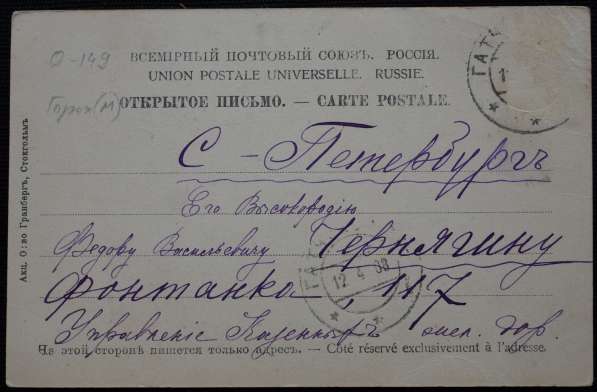 О-149
ВСЕМІРНЫЙ ПОЧТОВЫЙ СОЮЗЪ. РОССІЯ.
UNION POSTALE UNIVERSELLE. RUSSIE.
ОТКРЫТОЕ ПИСЬМО. — CARTE POSTALE.
С-Петербургъ
Его Высокородію
Федору Васильевичу Чернягину
Фонтанка, 117
Управленіе Казенныхъ жел. дор.
На этой сторонѣ пишется только адресъ. — Côté réservé exclusivement à l'adresse.
Акц. О:во Гранбергъ, Стокгольмъ
ГАТЧ
12 4